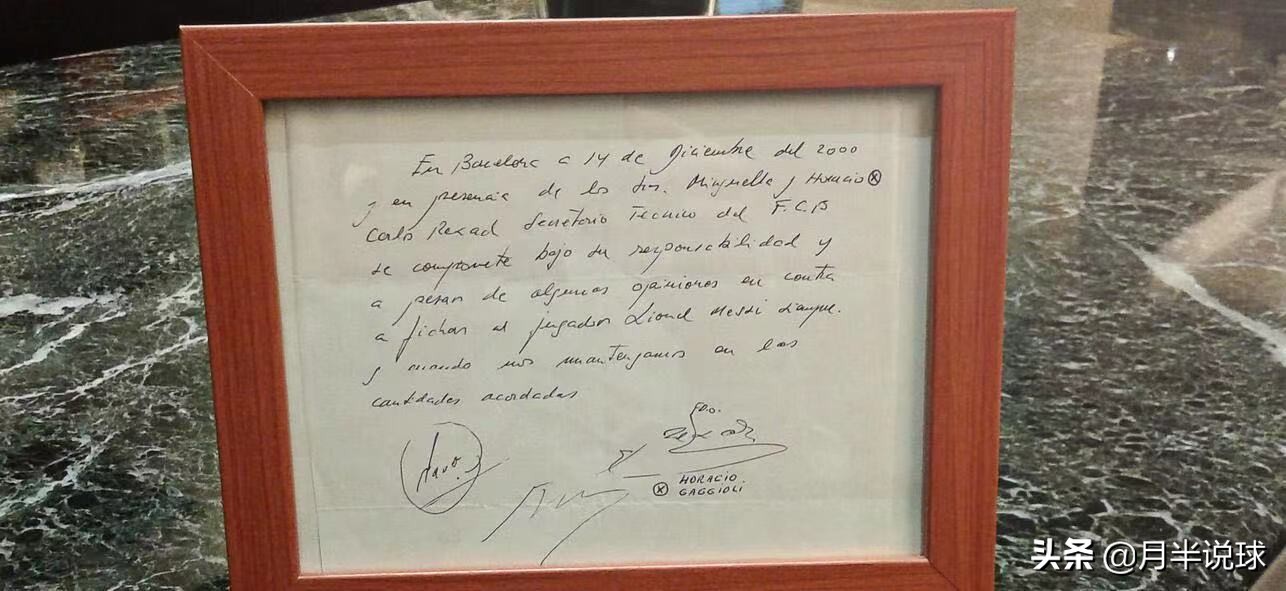 En Barcelona a 14 de Diciembre del 2000
y en presencia de los Srs. Minguella y Horacio ⓧ
Carlos Rexach Secretario Tecnico del F.C.B
se compromete bajo su responsabilidad y
a pesar de algunas opiniones en contra
a fichar al jugador Lionel Messi siempre
y cuando nos mantengamos en las
cantidades acordadas
Fdo.
ⓧ HORACIO
GAGGIOLI
头条 @月半说球